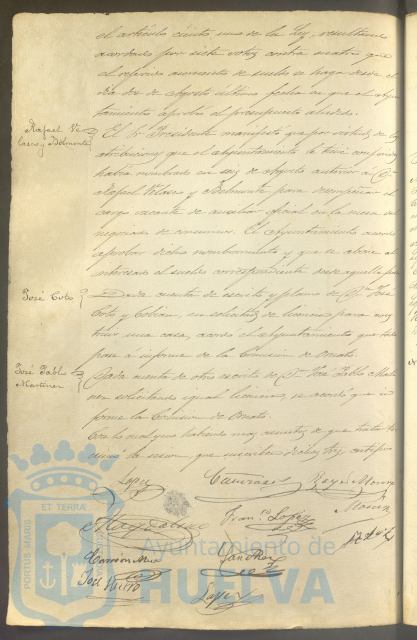 el artículo ciento uno de la Ley, resultando
acordado por siete votos contra cuatro que
el referido aumento de sueldo se haga desde el
día dos de Agosto último fecha en que el Ayun-
tamiento aprobó el presupuesto aludido.
Rafael Ve-
lasco y Belmonte
El Sr. Presidente manifestó que por virtud de la
atribucion que el Ayuntamiento le tiene conferida
había nombrado en seis de Agosto anterior a Dn.
Rafael Velasco y Belmonte para desempeñar el
cargo vacante de auxiliar oficial en la mesa del
negociado de consumos. El Ayuntamiento acordó
aprobar dicho nombramiento y que se abone al
interesado el sueldo correspondiente desde aquella fecha
José Coto
Dada cuenta de escrito y plano de Dn. José
Coto y Cobian, en solicitud de licencia para cons-
truir una casa, acordó el Ayuntamiento que todo
pase a informe de la Comision de Ornato.
José Pablo
Martinez
Dada cuenta de otro escrito de Dn. José Pablo Marti-
nez solicitando igual licencia, se acordó que in-
forme la Comision de Ornato.
Con lo cual y no habiendo mas asuntos de que tratar
Lopez
Reyes Mora
Franco. Lopez
Sanchez
José Nieto
Lopez
ET TERRÆ
PORTUS MARIS
CUSTODIA
Ayuntamiento de
HUELVA